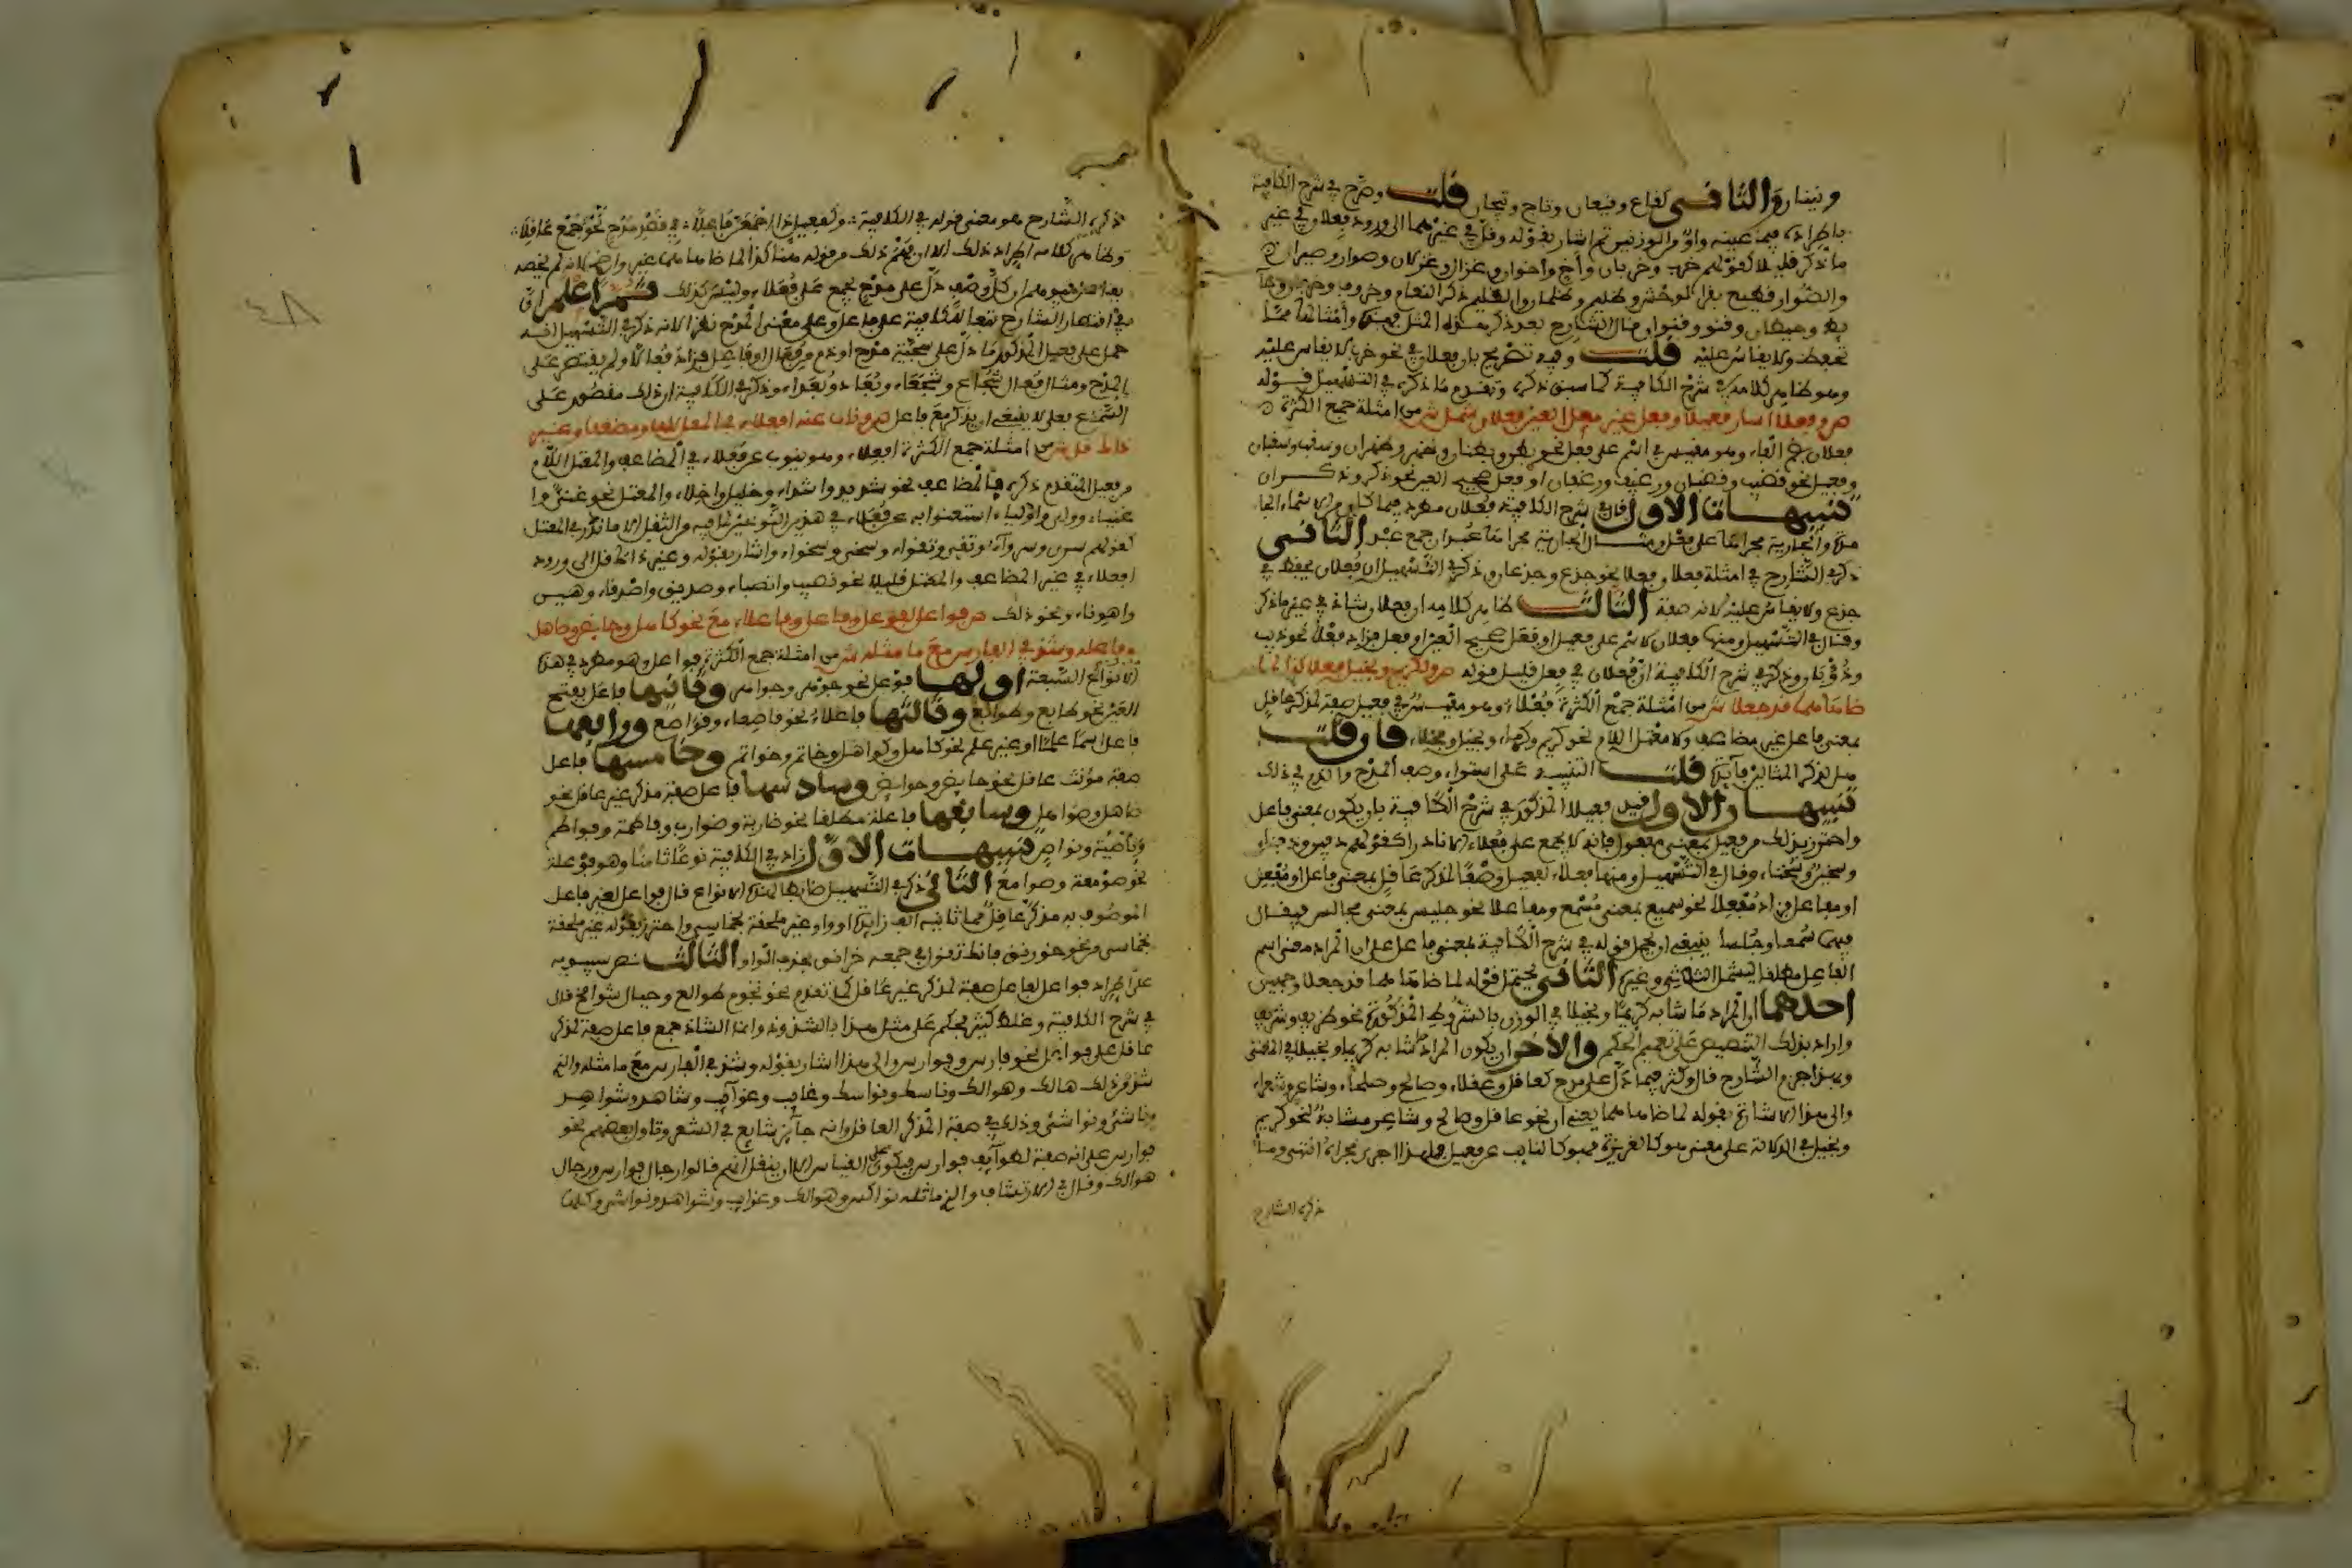 ونينان والثاني كقاع وقيعان وتاج وتيجان قلت وصرح في شرح الكافية
باطراده فيما عينه واو من الوزنين ثم اشار بقوله وقل في غيرهما الى ورود فعلان في غير
ما ذكر قليلا كقولهم خرب وخربان وأخ واخوان وغزال وغزلان وصوار وصيران
والصوار قطيع بقر الوحش وظليم وظلمان والظليم ذكر النعام وخروف وخرفان وحا
يط وحيطان وقنو وقنوان قال الشارح بعد ذكر هذه المثل فهذه وأمثالها مما
تحفظ ولا يقاس عليه قلت وفيه تصريح بان فعلان في نحو خرب لا يقاس عليه
وهو ظاهر كلامه في شرح الكافية كما سبق ذكره وتقدم ما ذكره في التسهيل قوله
ص وفعلا اسما وفعيلا وفعل غير معل العين فعلان شمل ش من امثلة جمع الكثرة
فعلان بضم الفاء وهو مقيس في اسم على فعل نحو بطن وبطنان وظهر وظهران وسقف وسقفان
وفعيل نحو قضيب وقضبان ورغيف ورغفان او فعل صحيح العين نحو ذكر وذكران
تنبيهات الاول قال في شرح الكافية فعلان مطرد فيما كان من الاسماء الجا
مدة والجارية مجراها على فعل ومثال الجارية مجراها عبد ان جمع عبد الثاني
ذكر الشارح في امثلة فعلان فعلا نحو جذع وجذعان وذكر في التسهيل ان فعلان يحفظ في
جذع ولا يقاس عليه لانه صفة الثالث ظاهر كلامه ان فعلان شاذ في غير ما ذكر
وقال في التسهيل ومنها فعلان لاسم على فعيل او فعل صحيح العين او فعل فزاد فعلا نحو ذيب
وذؤبان وذكر في شرح الكافية ان فعلان في فعل قليل قوله ص ولكريم وبخيل فعلا كذا لما
ضاهاهما قد جعلا ش من امثلة جمع الكثرة فعلاء وهو مقيس في فعيل صفة لمذكر عاقل
بمعنى فاعل غير مضاعف ولا معتل اللام نحو كريم وكرماء وبخيل وبخلاء فان قلت
هل لذكر المثالين فائدة قلت التنبيه على استواء وصف المدح والذم في ذلك
تنبيهان الاول قيد فعيلا المذكور في شرح الكافية بان يكون بمعنى فاعل
واحترز بذلك من فعيل بمعنى مفعول فانه لا يجمع على فعلاء الا نادرا كقولهم دفين ودفناء
وسجين وسجناء وقال في التسهيل ومنها فعلاء لفعيل وصفا لمذكر عاقل بمعنى فاعل او مفعل
او مفاعل فزاد مفعلا نحو سميع بمعنى مسمع ومفاعلا نحو جليس بمعنى مجالس فيقال
فيهما سمعاء وجلساء فينبغي ان يحمل قوله في شرح الكافية بمعنى فاعل على ان المراد معنى اسم
الفاعل مطلقا ليشمل الثلاثي وغيره الثاني يحتمل قوله لما ضاهاهما قد جعلا وجهين
احدهما ان المراد ما شابه كريما وبخيلا في الوزن بالشروط المذكورة نحو ظريف وشريف
واراد بذلك التنصيص على تعميم الحكم والاخر ان يكون المراد ما شابه كريما وبخيلا في المعنى
وبهذا جزم الشارح قال وكثر فيما دل على مدح كعاقل وعقلاء وصالح وصلحاء وشاعر وشعراء
والى هذا الاشارة بقوله لما ضاهاهما يعني ان نحو عاقل وصالح وشاعر مشابه لنحو كريم
وبخيل في الدلالة على معنى هو كالغريزة فهو كالنايب عن فعيل فلهذا اجري مجراه انتهى وما
ذكره الشارح
ذكره الشارح هو معنى قوله في الكافية ولفعيل ذا اجعلن فاعلا في قصد مدح نحو جمع عاقلا
وظاهر كلامه اطراد ذلك الا ان يفهم ذلك من قوله هنا كذا لما ضاهاهما غير واضح لانه لم يخصه
كل وصف دل على مدح يجمع على فعلاء وليس كذلك ثم اعلم ان
في اقتصار الشارح تبعا للكافية على فاعل وعلى معنى المدح نظرا لانه ذكر في التسهيل انه
حمل على فعيل المذكور ما دل على سجية مدح او ذم من فعال او فاعل فزاد فعالا ولم يقتصر على
المدح ومثال فعال شجاع وشجعاء وبعاد وبعداء وذكر في الكافية ان ذلك مقصور على
السماع فعلى لا ينبغي ان يذكر مع فاعل ص وناب عنه افعلاء في المعل لاما ومضعف وغير
ذاك قل ش من امثلة جمع الكثرة افعلاء وهو ينوب عن فعلاء في المضاعف والمعتل اللام
من فعيل المتقدم ذكره فالمضاعف نحو شديد واشداء وخليل واخلاء والمعتل نحو غني وا
غنياء وولي واولياء استغنوا به عن فعلاء في هذين النوعين لما فيه من الثقل الا ما ندر في المعتل
كقولهم سري وسرواء وتقي وتقواء وسخي وسخواء واشار بقوله وغير ذاك قل الى ورود
افعلاء في غير المضاعف والمعتل قليلا نحو نصيب وانصباء وصديق واصدقاء وهين
واهوناء ونحو ذلك ص فواعل لفوعل وفاعل وفاعلاء مع نحو كاهل وحايض وصاهل
وفاعله وشذ في الفارس مع ما ماثله ش من امثلة جمع الكثرة فواعل وهو مطرد في هذه
الانواع السبعة اولها فوعل نحو جوهر وجواهر وثانيها فاعل بفتح
العين نحو طابع وطوابع وثالثها فاعلاء نحو قاصعاء وقواصع ورابعها
فاعل اسما علما او غير علم نحو كاهل وكواهل وخاتم وخواتم وخامسها فاعل
صفة مؤنث عاقل نحو حايض وحوايض وسادسها فاعل صفة مذكر غير عاقل نحو
صاهل وصواهل وسابعها فاعلة مطلقا نحو ضاربة وضوارب وفاطمة وفواطم
وناصية ونواص تنبيهات الاول زاد في الكافية نوعا ثامنا وهو فوعلة
نحو صومعة وصوامع الثاني ذكر في التسهيل ضابطا لهذه الانواع فقال فواعل لغير فاعل
الموصوف به مذكر عاقل مما ثانيه الف زايدة او واو غير ملحقة بخماسي واحترز بقوله غير ملحقة
بخماسي من نحو خورنق فانك تقول في جمعه خرانق بحذف الواو الثالث نص سيبويه
على اطراد فواعل لفاعل صفة لمذكر غير عاقل كما تقدم نحو نجوم طوالع وجبال شوامخ قال
في شرح الكافية وغلط كثير فحكم على مثل هذا بالشذوذ وانما الشاذ جمع فاعل صفة لمذكر
عاقل على فواعل نحو فارس وفوارس والى هذا اشار بقوله وشذ في الفارس مع ما ماثله والذي
شذ من ذلك هالك وهوالك وناكس ونواكس وغايب وغوايب وشاهد وشواهد
وناشئ ونواشئ وذلك في صفة المذكر العاقل وانه جائز شايع في الشعر وتاول بعضهم نحو
فوارس على انه صفة لطوايف فوارس فيكون على القياس الا ان ينقل انهم قالوا رجال فوارس ورجال
هوالك وقال في الارتشاف والذي ماثله نواكس وهوالك وغوايب وشواهد ونواشئ وكلها